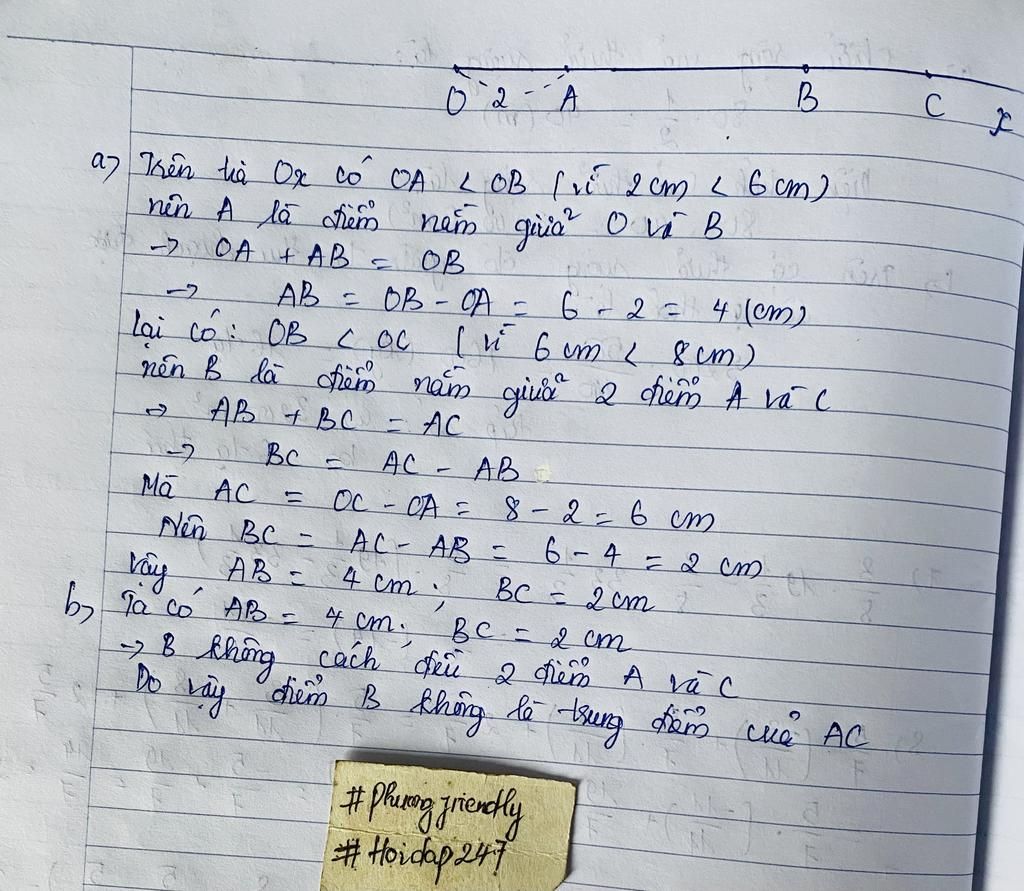 O 2 A B C x
a) Trên tia Ox có OA < OB (vì 2cm < 6cm)
nên A là điểm nằm giữa O và B
→ OA + AB = OB
→ AB = OB - OA = 6 - 2 = 4 (cm)
Lại có: OB < OC (vì 6cm < 8cm)
nên B là điểm nằm giữa 2 điểm A và C
→ AB + BC = AC
→ BC = AC - AB
Mà AC = OC - OA = 8 - 2 = 6 cm
Nên BC = AC - AB = 6 - 4 = 2 cm
Vậy AB = 4 cm; BC = 2cm
b) Ta có AB = 4 cm; BC = 2 cm
→ B không cách đều 2 điểm A và C
Do vậy điểm B không là trung điểm của AC
# Phuongfriendly
# Hoidap247